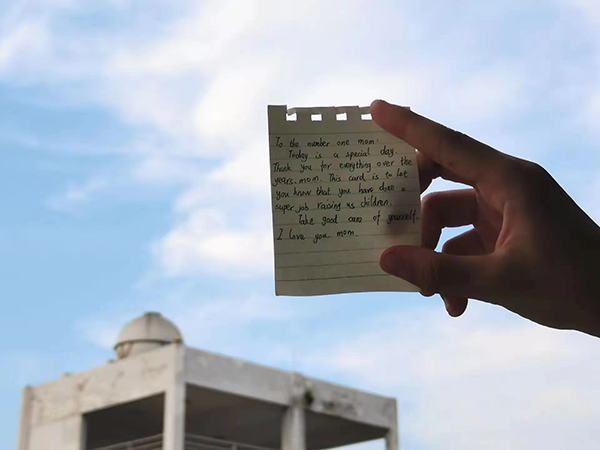 To the number one mom:
Today is a special day.
Thank you for everything over the
years, mom. This card is to let
you know that you have done a
super job raising us children.
Take good care of yourself.
I love you mom.